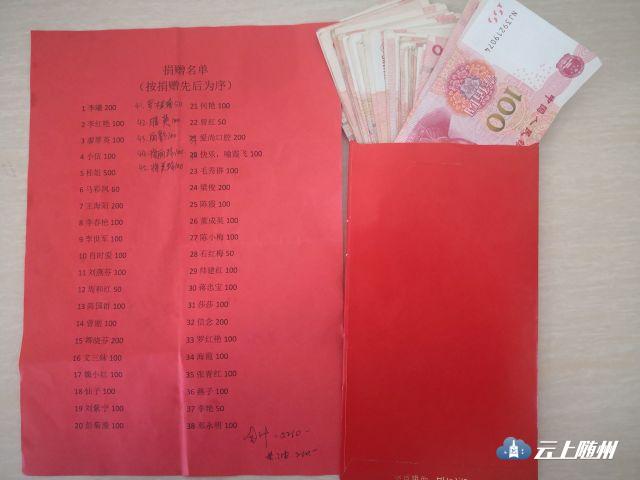 捐赠名单
（按捐赠先后为序）
1 李曦 200
2 李红艳 100
3 廖翠英 100
4 小伍 100
5 桂姐 500
6 马彩凤 60
7 王海阳 200
8 李春艳 100
9 李世军 100
10 肖时爱 100
11 刘燕芬 100
12 周和红 50
13 陈国群 100
14 曾丽 100
15 蒋晓芬 200
16 文三妹 100
17 魏小红 100
18 仙子 100
19 刘紫宁 100
20 彭菊漫 100
41. 50
42. 英 100
43. 100
44. 100
45. 100
21 何艳 100
22 曾红 50
爱尚口腔 200
快乐，喻霞飞 100
23 毛秀群 100
24 梁俊 200
25 陈霞 100
26 董成英 100
27 陈小梅 100
28 石红梅 50
29 帅建红 100
30 蒋忠宝 100
31 莎莎 100
32 信念 200
33 罗红艳 100
34 海霞 100
35 张青红 100
36 燕子 100
37 李艳 50
38 郑永明 100
合计
NJ39219074
100
中国人民
云上随州